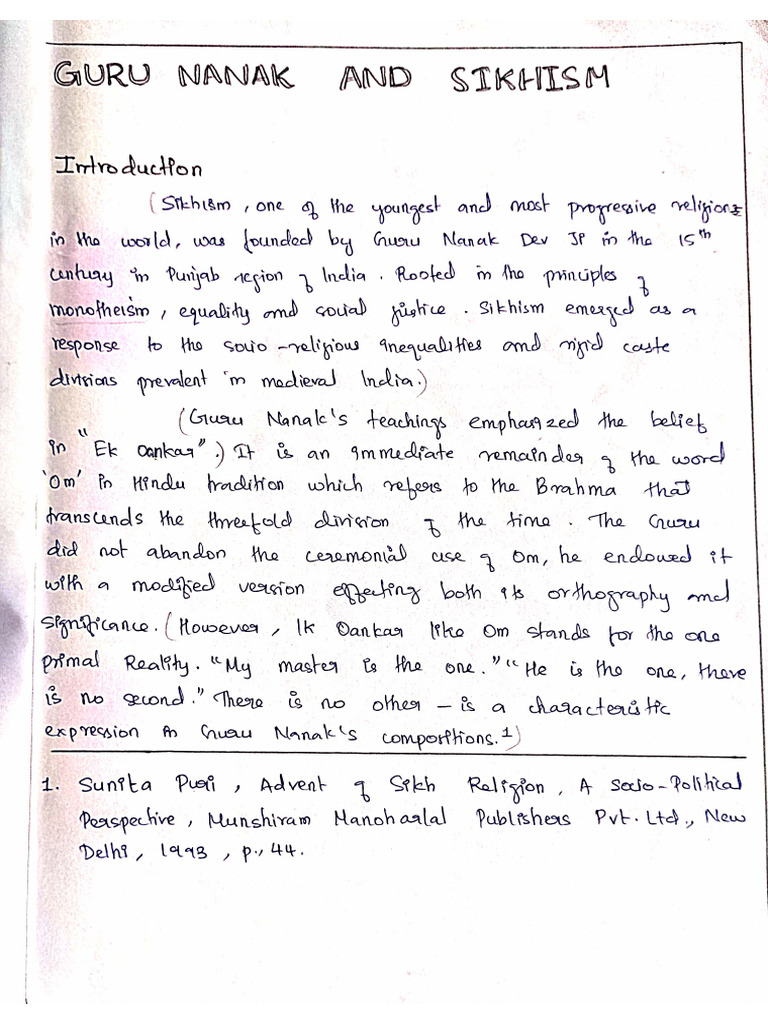 GURU NANAK AND SIKHISM
Introduction
(Sikhism, one of the youngest and most progressive religions
in the world, was founded by Guru Nanak Dev JP in the 15th
century in Punjab region of India. Rooted in the principles of
monotheism, equality and social justice. Sikhism emerged as a
response to the socio-religious inequalities and rigid caste
divisions prevalent in medieval India.)
(Guru Nanak's teachings emphasized the belief
in "Ek Oankar".) It is an immediate remainder of the word
'Om' in Hindu tradition which refers to the Brahma that
transcends the threefold division of the time. The Guru
did not abandon the ceremonial use of Om, he endowed it
with a modified version effecting both its orthography and
significance. (However, Ik Oankar like Om stands for the one
primal Reality. "My master is the one." "He is the one, there
is no second." There is no other – is a characteristic
expression in Guru Nanak's compositions.1)
1. Sunita Puri, Advent of Sikh Religion, A Socio-Political
Perspective, Munshiram Manoharlal Publishers Pvt. Ltd., New
Delhi, 1993, p., 44.